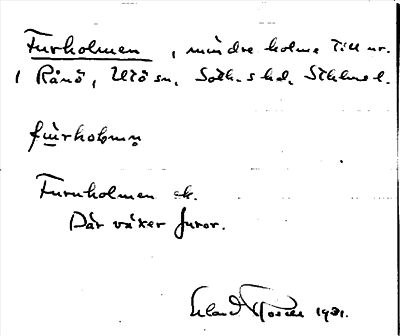 Furholmen, mindre holme till nr.
1 Rånö, Utö sn, Soth. shd, Sthlms l.
fùrhoḷmṇ
Furuholmen ek.
Där växer furor.
Erland Rosell 1931.